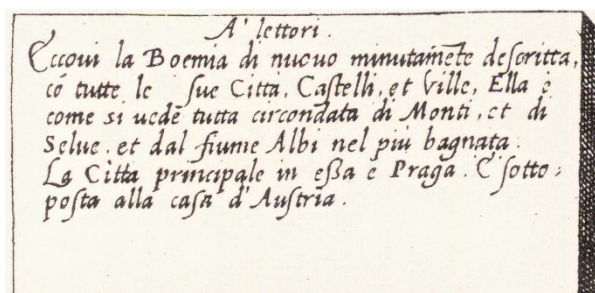 A' lettori.
Eccoui la Boemia di nuouo minutamēte deſcritta,
cō tutte le ſue Città, Caſtelli, et Ville, Ella è
come si uede tutta circondata di Monti, et di
Selue, et dal fiume Albi nel più bagnata.
La Città principale in eſſa è Praga. È ſotto:
poſta alla caſa d'Auſtria.